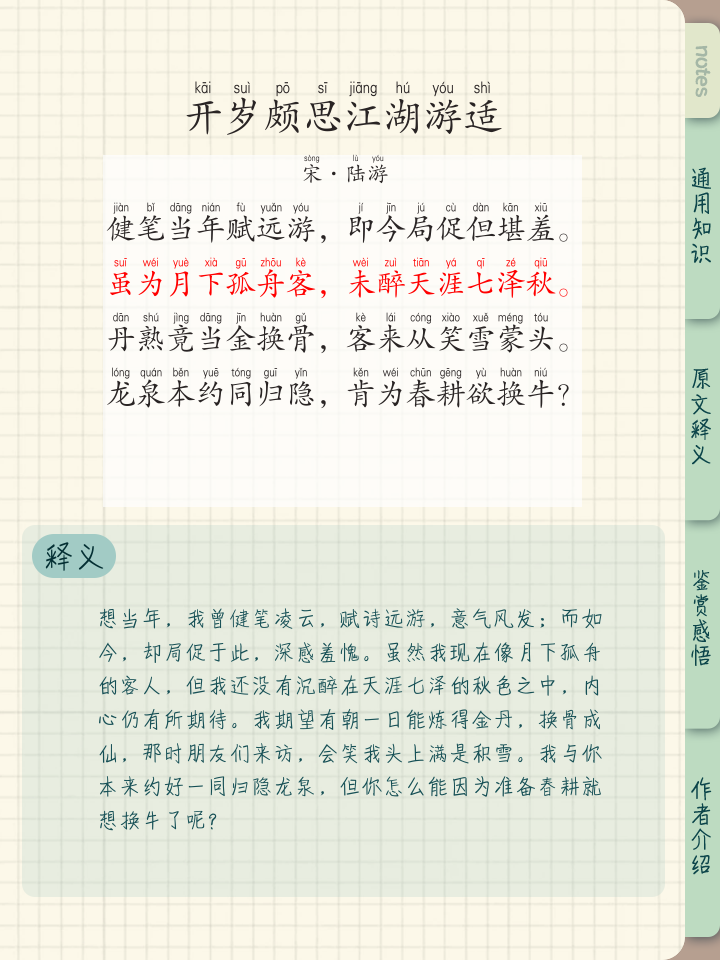 kāi suì pō sī jiāng hú yóu shì
开岁颇思江湖游适
sòng lù yóu
宋·陆游
jiàn bǐ dāng nián fù yuǎn yóu jí jīn jú cù dàn kān xiū
健笔当年赋远游，即今局促但堪羞。
suī wéi yuè xià gū zhōu kè wèi zuì tiān yá qī zé qiū
虽为月下孤舟客，未醉天涯七泽秋。
dān shú jìng dāng jīn huàn gǔ kè lái cóng xiào xuě méng tóu
丹熟竟当金换骨，客来从笑雪蒙头。
lóng quán běn yuē tóng guī yǐn kěn wéi chūn gēng yù huàn niú
龙泉本约同归隐，肯为春耕欲换牛？
释义
想当年，我曾健笔凌云，赋诗远游，意气风发；而如
今，却局促于此，深感羞愧。虽然我现在像月下孤舟
的客人，但我还没有沉醉在天涯七泽的秋色之中，内
心仍有所期待。我期望有朝一日能炼得金丹，换骨成
仙，那时朋友们来访，会笑我头上满是积雪。我与你
本来约好一同归隐龙泉，但你怎么能因为准备春耕就
想换牛了呢？
notes
通用知识
原文释义
鉴赏感悟
作者介绍